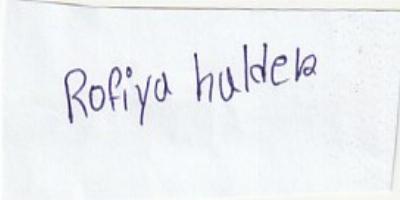 Rofiya halder